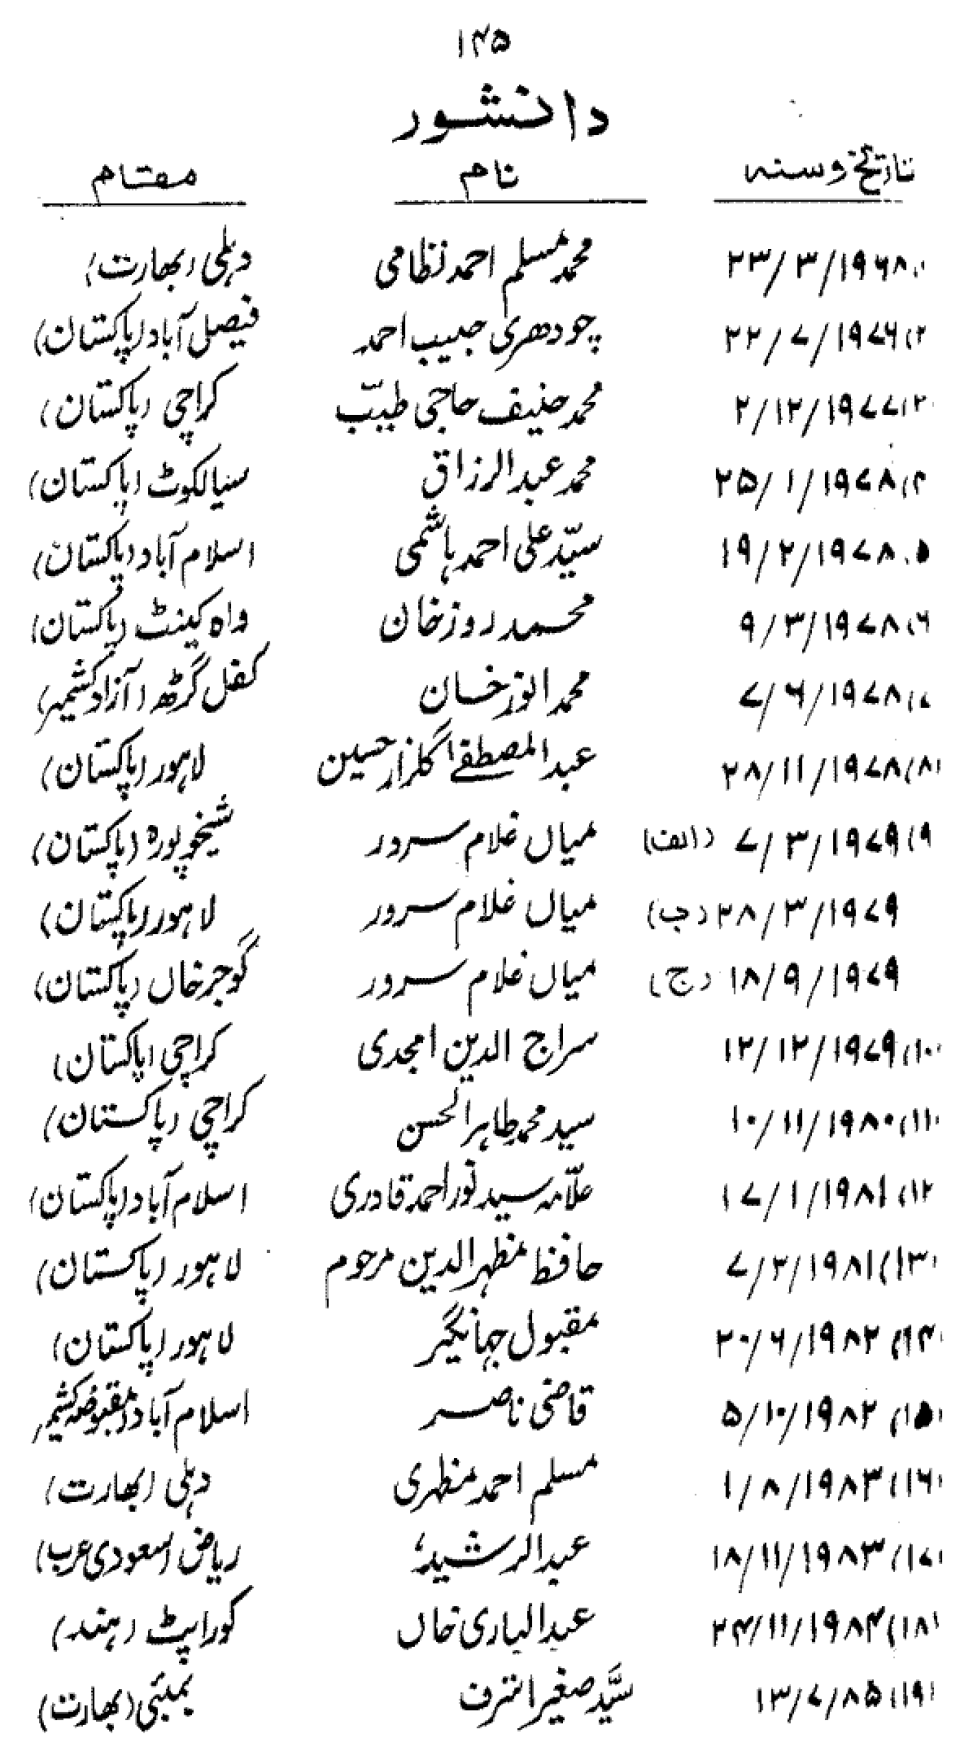 ۱۴۵
دانشور
تاریخ و سنہ نام مقام
۱) ۲۳/۳/۱۹۶۸ محمد مسلم احمد نظامی دہلی (بھارت)
۲) ۲۲/۷/۱۹۷۶ چودھری حبیب احمد فیصل آباد (پاکستان)
۳) ۲/۱۲/۱۹۷۷ محمد حنیف حاجی طیّب کراچی (پاکستان)
۴) ۲۵/۱/۱۹۷۸ محمد عبدالرزاق سیالکوٹ (پاکستان)
۵) ۱۹/۲/۱۹۷۸ سیّد علی احمد ہاشمی اسلام آباد (پاکستان)
۶) ۹/۳/۱۹۷۸ محمد روز خان واہ کینٹ (پاکستان)
۷) ۷/۶/۱۹۷۸ محمد انور خان کفل گڑھ (آزاد کشمیر)
۸) ۲۸/۱۱/۱۹۷۸ عبدالمصطفےٰ گلزار حسین لاہور (پاکستان)
۹) ۷/۳/۱۹۷۹ (الف) میاں غلام سرور شیخوپورہ (پاکستان)
۲۸/۳/۱۹۷۹ (ب) میاں غلام سرور لاہور (پاکستان)
۱۸/۹/۱۹۷۹ (ج) میاں غلام سرور گوجر خاں (پاکستان)
۱۰) ۱۲/۱۲/۱۹۷۹ سراج الدین امجدی کراچی (پاکستان)
۱۱) ۱۰/۱۱/۱۹۸۰ سید محمد طاہر الحسن کراچی (پاکستان)
۱۲) ۱۷/۱/۱۹۸۱ علّامہ سید نور احمد قادری اسلام آباد (پاکستان)
۱۳) ۷/۲/۱۹۸۱ حافظ مظہر الدین مرحوم لاہور (پاکستان)
۱۴) ۲۰/۶/۱۹۸۲ مقبول جہانگیر لاہور (پاکستان)
۱۵) ۵/۱۰/۱۹۸۲ قاضی ناصر اسلام آباد (مقبوضہ کشمیر)
۱۶) ۱/۸/۱۹۸۳ مسلم احمد مظہری دہلی (بھارت)
۱۷) ۱۸/۱۱/۱۹۸۳ عبدالرشید ریاض (سعودی عرب)
۱۸) ۲۴/۱۱/۱۹۸۴ عبدالباری خاں کوراپٹ (ہند)
۱۹) ۱۳/۷/۸۵ سیَّد صغیر اشرف بمبئی (بھارت)